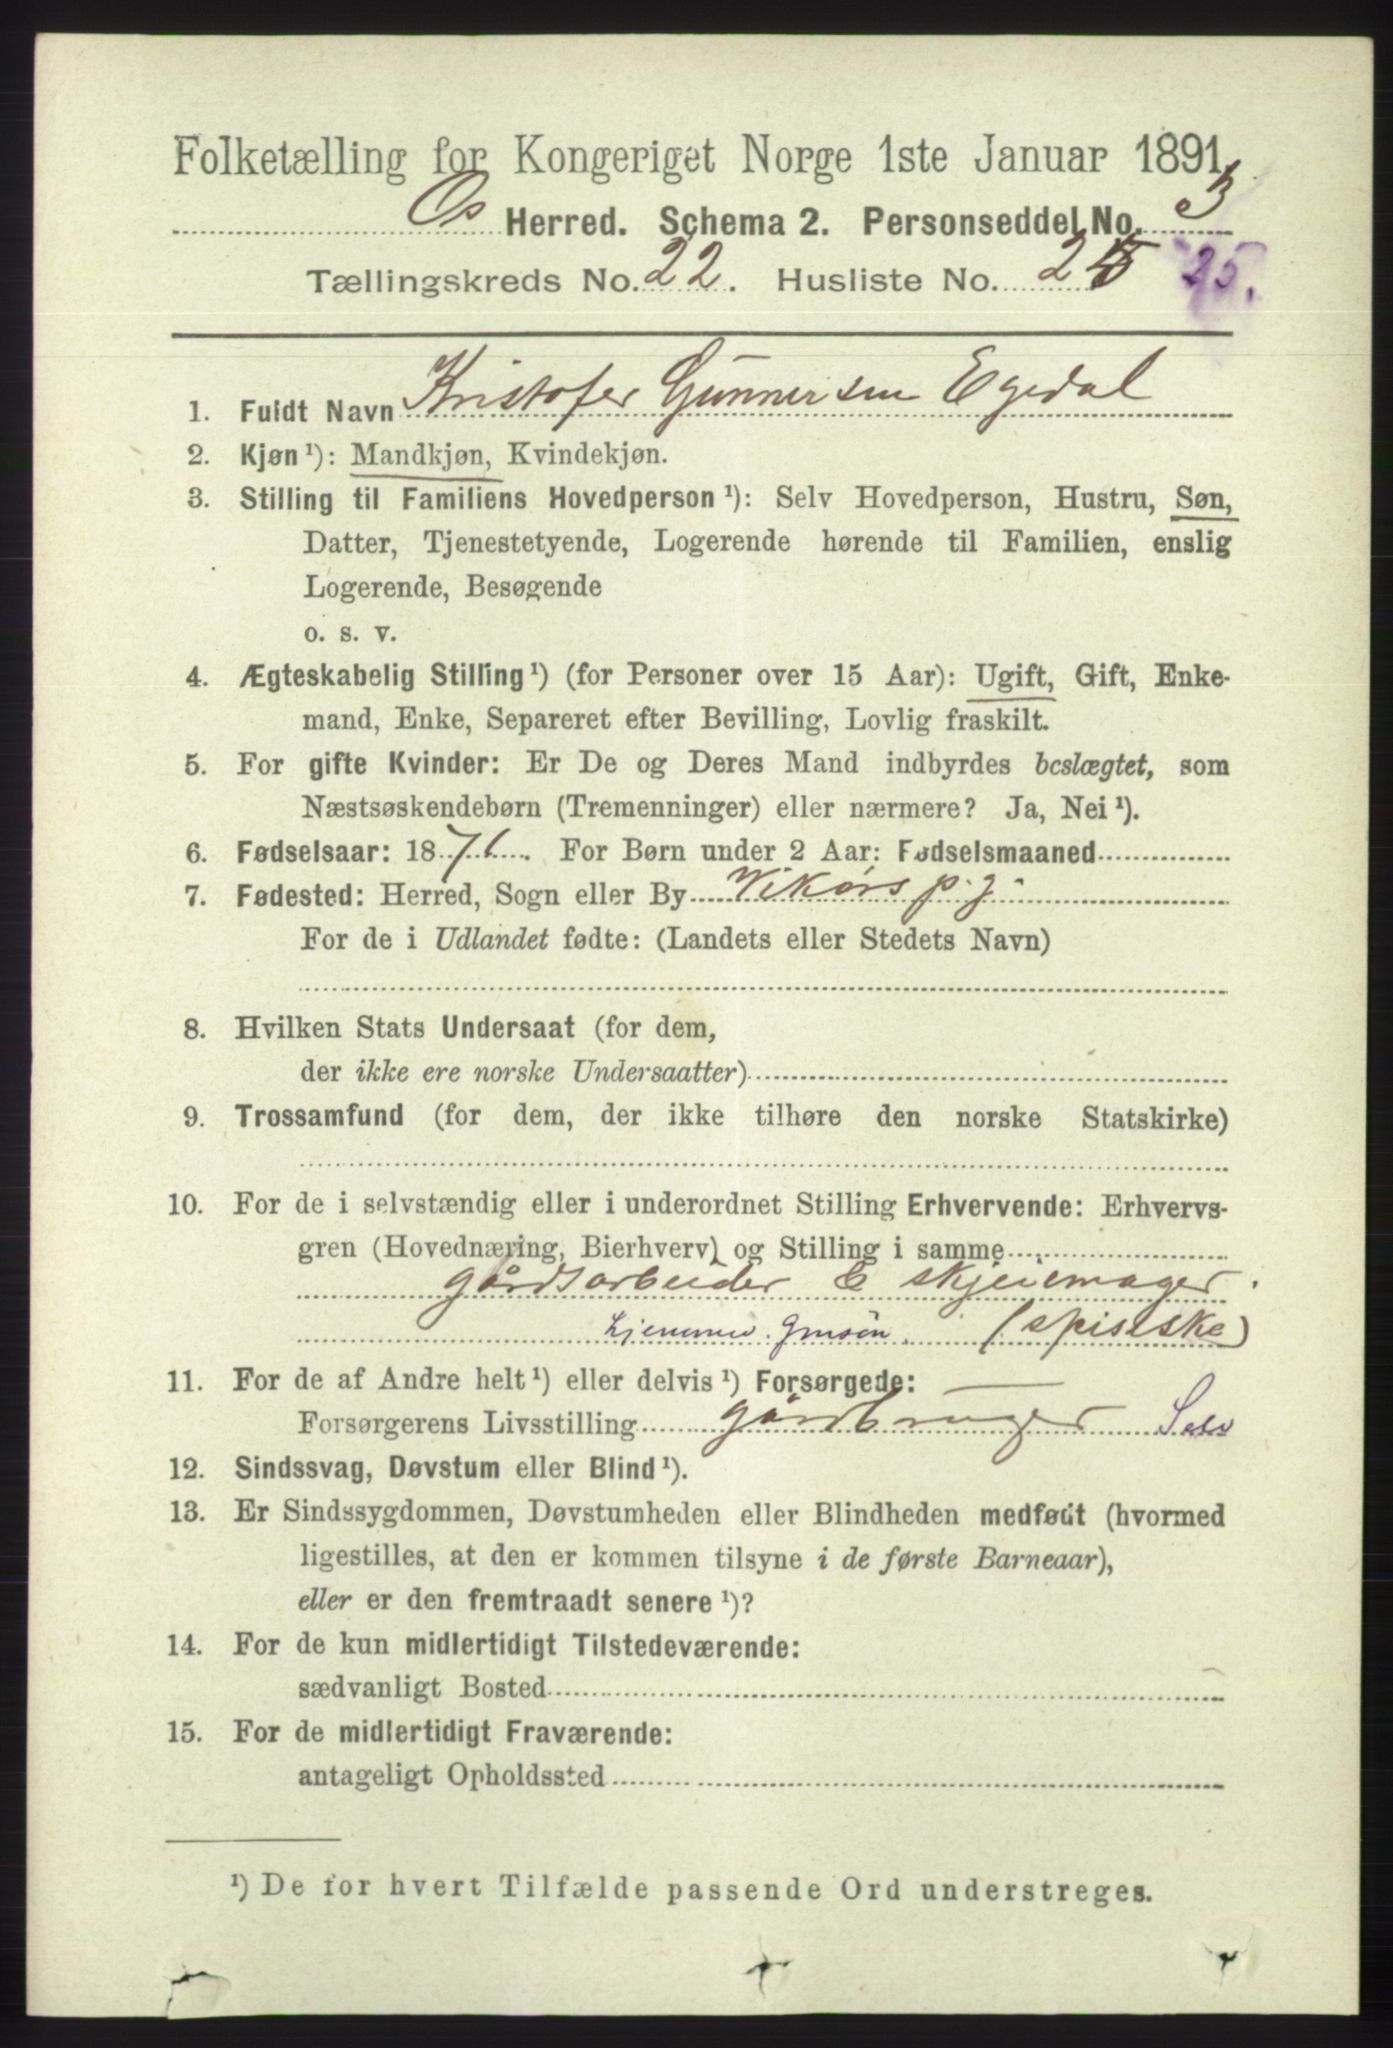 Folketælling for Kongeriget Norge 1ste Januar 1891.
Os Herred. Schema 2. Personseddel No. 3
Tællingskreds No. 22. Husliste No. 25 25.
1. Fuldt Navn Kristofer Gunnersen Egedal
2. Kjøn¹): Mandkjøn, Kvindekjøn.
3. Stilling til Familiens Hovedperson¹): Selv Hovedperson, Hustru, Søn,
Datter, Tjenestetyende, Logerende hørende til Familien, enslig
Logerende, Besøgende
o. s. v.
4. Ægteskabelig Stilling¹) (for Personer over 15 Aar): Ugift, Gift, Enke-
mand, Enke, Separeret efter Bevilling, Lovlig fraskilt.
5. For gifte Kvinder: Er De og Deres Mand indbyrdes beslægtet, som
Næstsøskendebørn (Tremenninger) eller nærmere? Ja, Nei¹).
6. Fødselsaar: 1871. For Børn under 2 Aar: Fødselsmaaned
7. Fødested: Herred, Sogn eller By Vikørs p. g.
For de i Udlandet fødte: (Landets eller Stedets Navn)
8. Hvilken Stats Undersaat (for dem,
der ikke ere norske Undersaatter)
9. Trossamfund (for dem, der ikke tilhøre den norske Statskirke)
10. For de i selvstændig eller i underordnet Stilling Erhvervende: Erhvervs-
gren (Hovednæring, Bierhverv) og Stilling i samme
gårdsarbeider & skjeiemager.
Hjemmev. Gmsøn. (spiseske)
11. For de af Andre helt¹) eller delvis¹) Forsørgede:
Forsørgerens Livsstilling gårdbruger Selv
12. Sindssvag, Døvstum eller Blind¹).
13. Er Sindssygdommen, Døvstumheden eller Blindheden medfødt (hvormed
ligestilles, at den er kommen tilsyne i de første Barneaar),
eller er den fremtraadt senere¹)?
14. For de kun midlertidigt Tilstedeværende:
sædvanligt Bosted
15. For de midlertidigt Fraværende:
antageligt Opholdssted
¹) De for hvert Tilfælde passende Ord understreges.